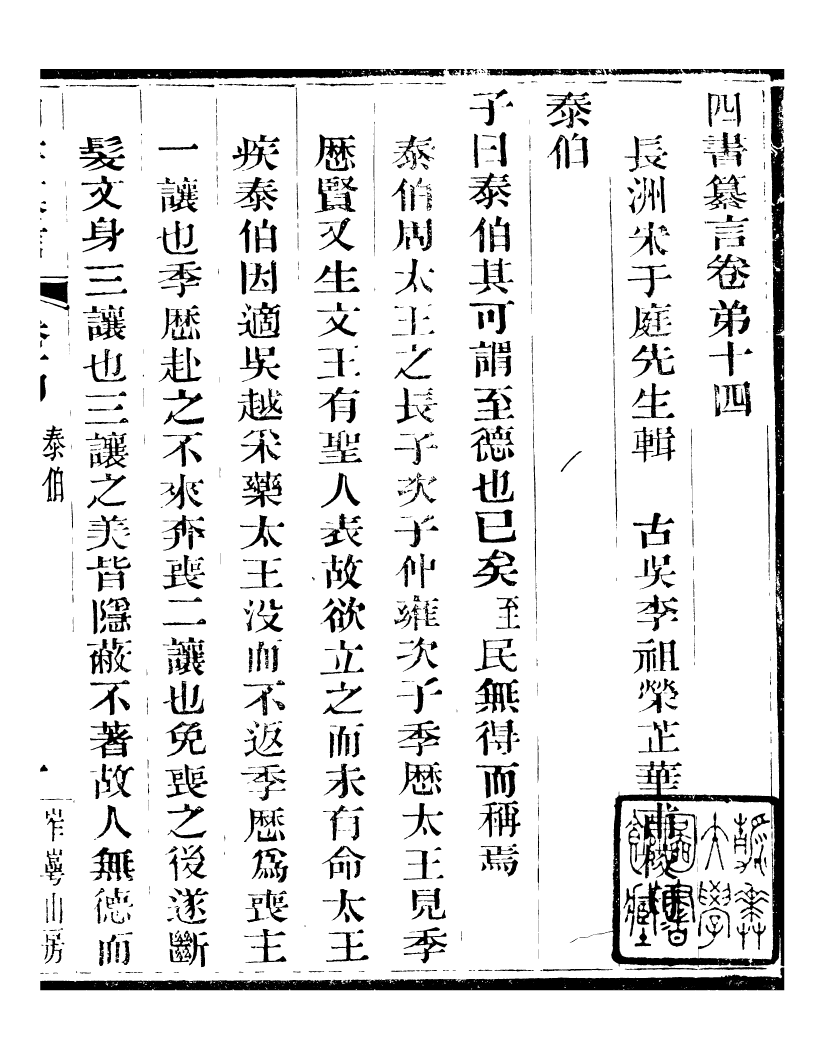 四書纂言卷弟十四
長洲宋于庭先生輯　古吳李祖榮芷華甫校
泰伯
子曰泰伯其可謂至德也已矣至民無得而稱焉
泰伯周太王之長子次子仲雍次子季歷太王見季
歷賢又生文王有聖人表故欲立之而未有命太王
疾泰伯因適吳越采藥太王没而不返季歷爲喪主
一讓也季歷赴之不來奔喪二讓也免喪之後遂斷
髮文身三讓也三讓之美皆隱蔽不著故人無德而
泰伯
山房